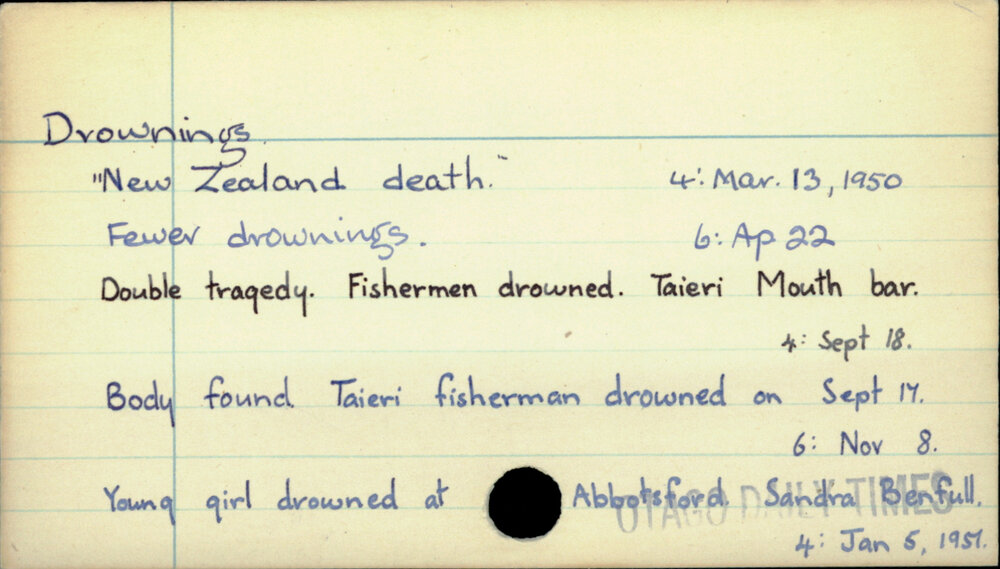 Drownings.
"New Zealand death." 4: Mar. 13, 1950
Fewer drownings. 6: Ap 22
Double tragedy. Fishermen drowned. Taieri Mouth bar.
4: Sept 18.
Body found. Taieri fisherman drowned on Sept 17.
6: Nov 8.
Young girl drowned at Abbotsford. Sandra Benfull.
OTAGO DAILY TIMES
4: Jan 5, 1951.